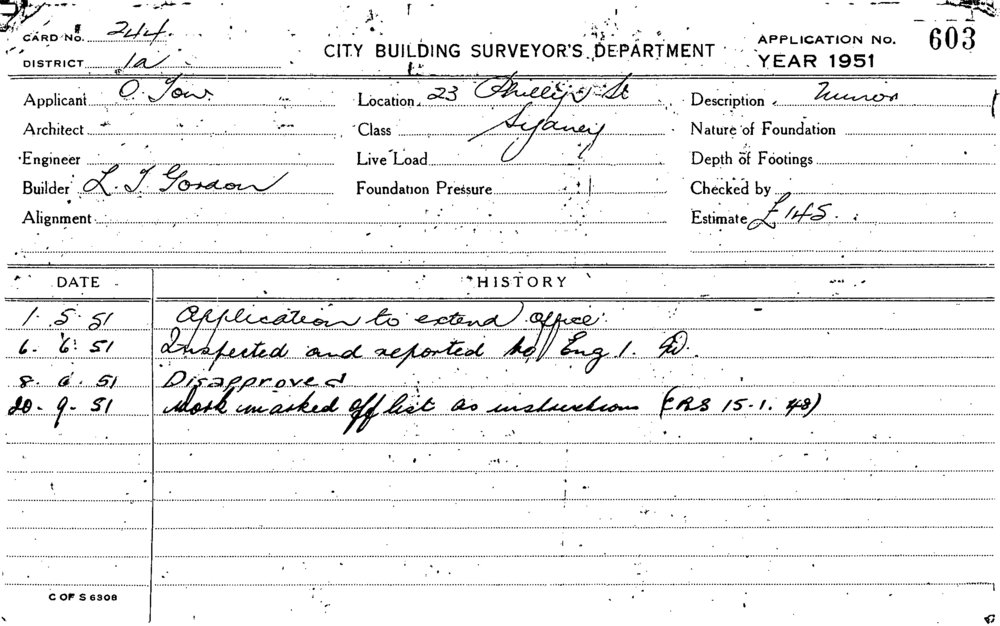 CARD No. 244.
CITY BUILDING SURVEYOR'S DEPARTMENT
APPLICATION No. 603
DISTRICT 1a
YEAR 1951
Applicant O. Tow. Location 23 Phillip St Description Minor
Architect Class Sydney Nature of Foundation
Engineer Live Load Depth of Footings
Builder L. J Gordon Foundation Pressure Checked by
Alignment Estimate £145.
DATE HISTORY
1. 5 51 Application to extend office.
6. 6. 51 Inspected and reported to Eng 1.
8. 6. 51 Disapproved
20. 9. 51 Work marked off list as instructions (CRS 15.1. 48)
C OF S 6308